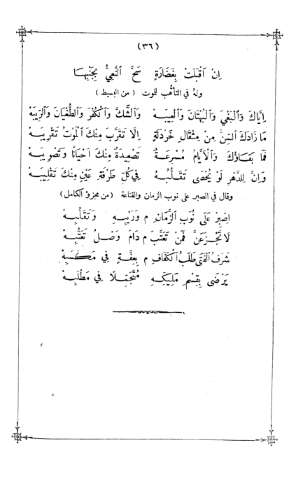 (٣٦)
إِنْ أَقْبَلَتْ بِغَضَارَةٍ سَحَّ النَّعِيُّ بِجَنْبِهَا
وله في التأهّب للموت (من البسيط)
إِيَّاكَ وَالْبَغْيَ وَالْبُهْتَانَ وَالْغِيبَهْ وَالشَّكَّ وَالْكُفْرَ وَالطُّغْيَانَ وَالرِّيبَهْ
مَا زَادَكَ السِّنُّ مِنْ مِثْقَالِ خَرْدَلَةٍ إِلَّا تَقَرَّبَ مِنْكَ الْمَوْتُ تَقْرِيبَهْ
فَمَا بَقَاؤُكَ وَالْأَيَّامُ مُسْرِعَةٌ تَصْعِيدَةً مِنْكَ أَحْيَانًا وَتَصْوِيبَهْ
وَإِنَّ لِلدَّهْرِ لَوْ يُحْصَى تَقَلُّبُهُ فِي كُلِّ طَرْفَةِ عَيْنٍ مِنْكَ تَقْلِيبَهْ
وقال في الصبر على نوب الزمان والقناعة (من مجزوّ الكامل)
اِصْبِرْ عَلَى نُوَبِ الزَّمَانِ م وَرَيْبِهِ وَتَقَلُّبِهْ
لَا تَجْزَعَنَّ فَمَنْ تَعَتَّبَ م دَامَ وَصْلُ تَعَتُّبِهْ
شَرَفُ الْفَتَى طَلَبُ الْكَفَافِ م بِعِفَّةٍ فِي مَكْسَبِهْ
يَرْضَى بِقَسْمِ مَلِيكِهِ مُتَجَمِّلًا فِي مَطْلَبِهْ